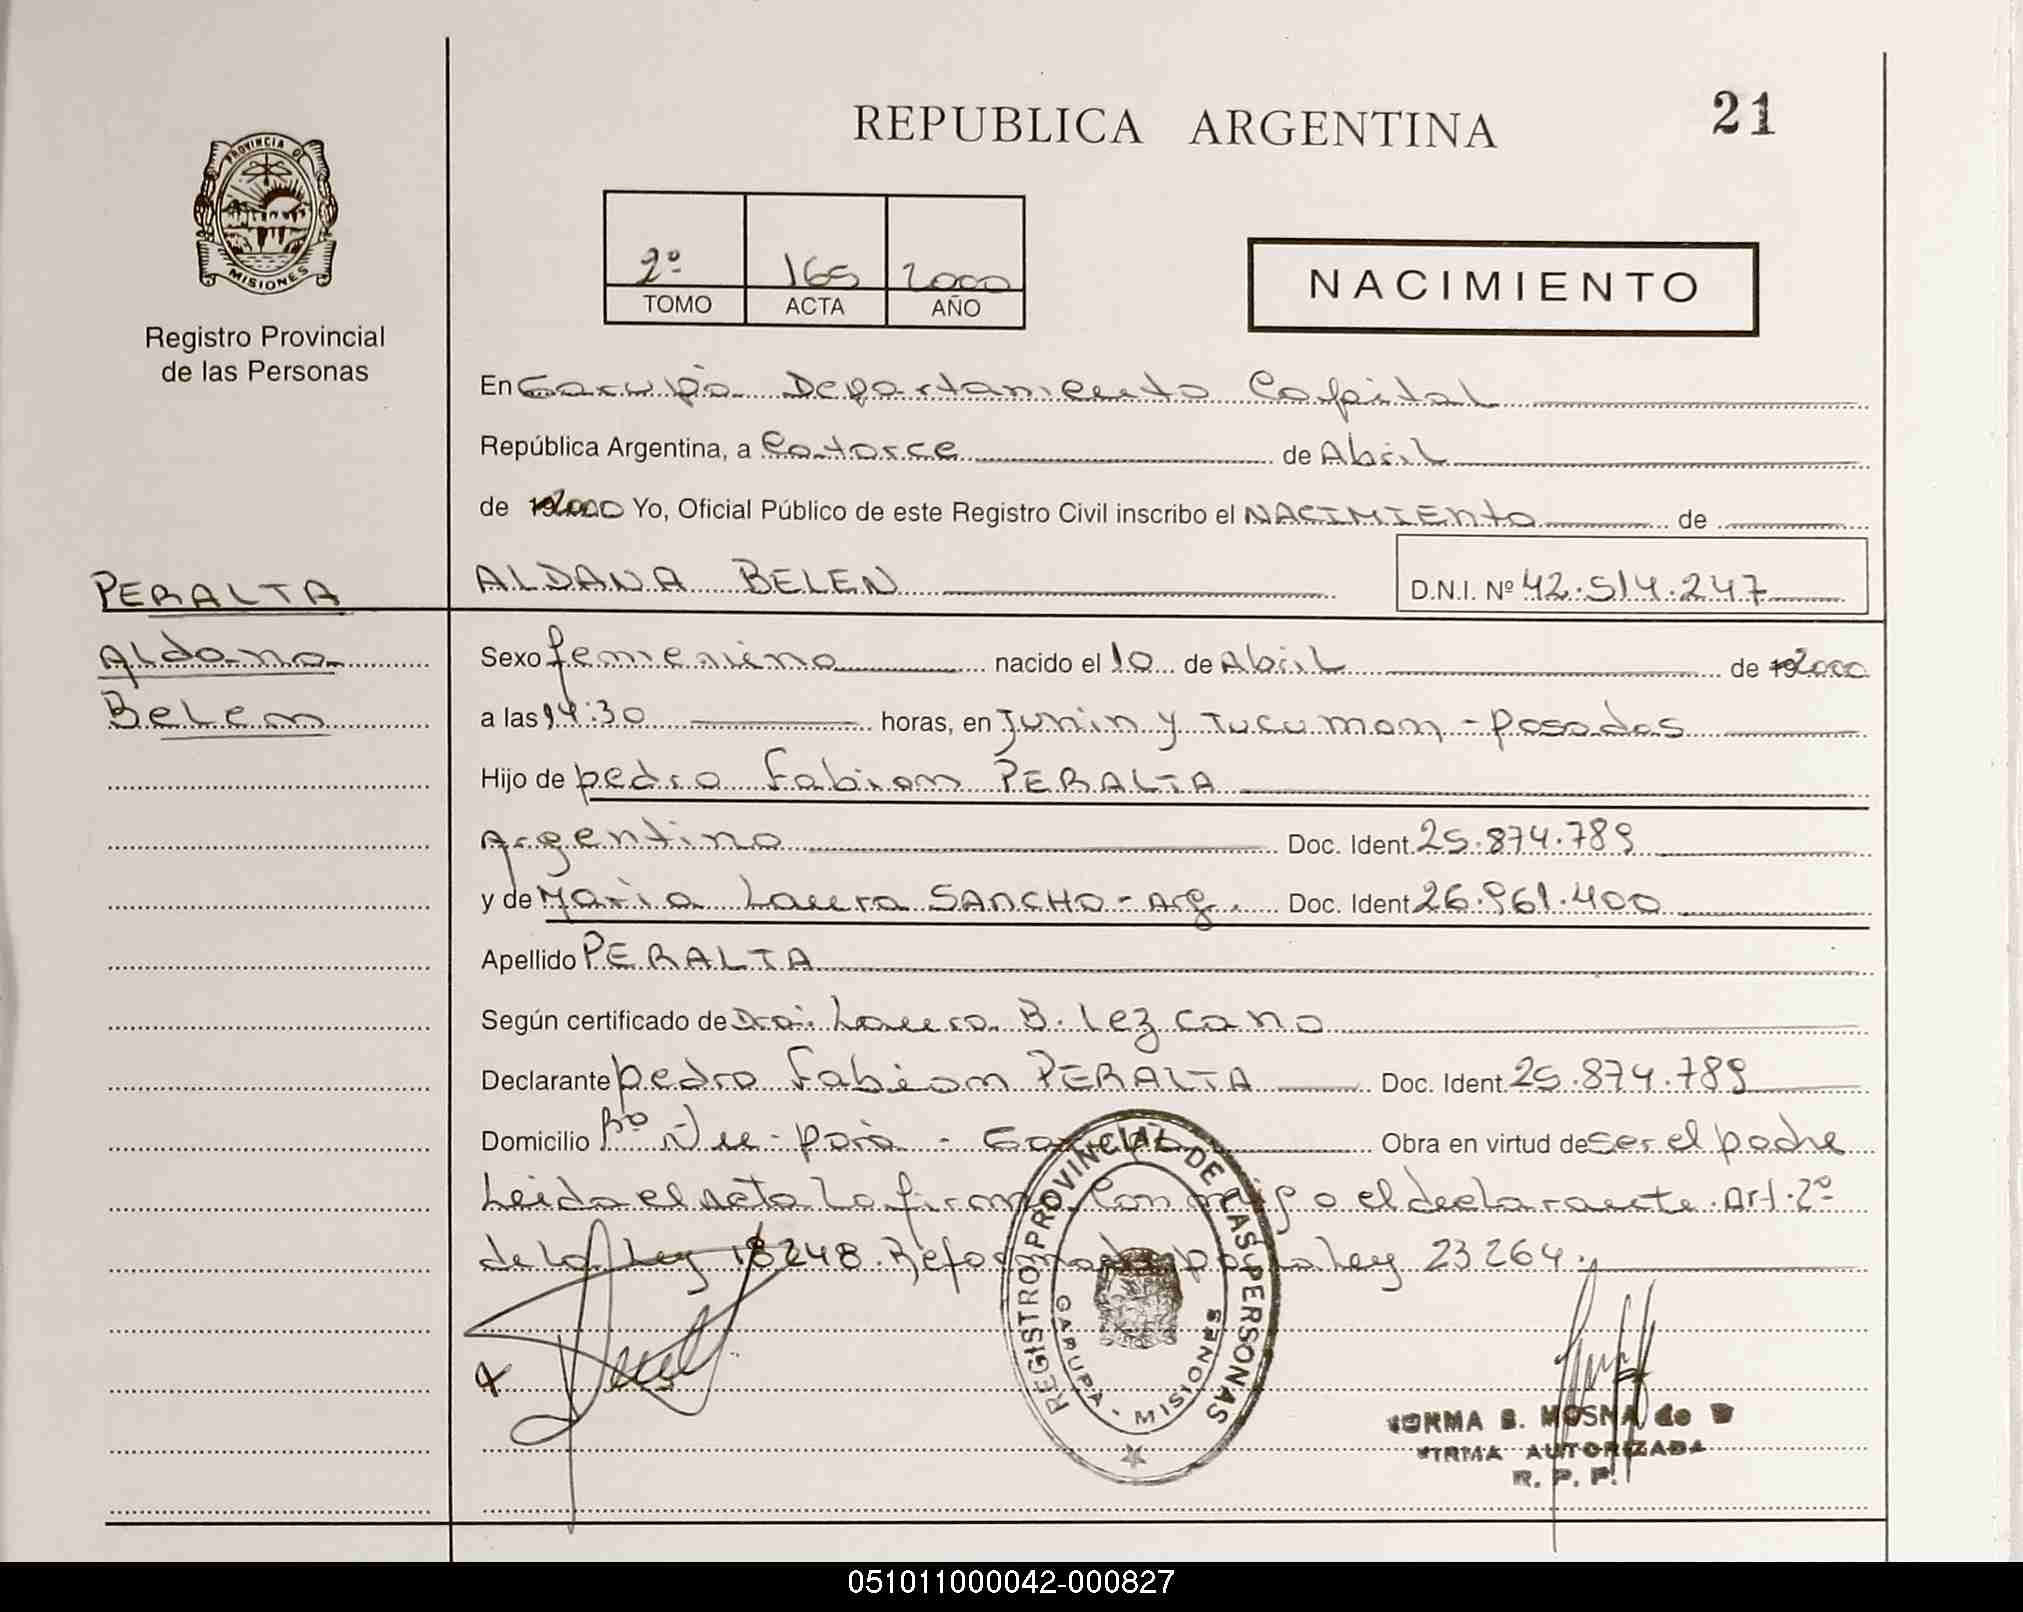 REPUBLICA ARGENTINA
21
PROVINCIA DE
MISIONES
Registro Provincial
de las Personas
2º 165 2000
TOMO ACTA AÑO
NACIMIENTO
En Garupá Departamento Capital
República Argentina, a Catorce de Abril
de 2000 Yo, Oficial Público de este Registro Civil inscribo el NACIMIENTO de
ALDANA BELEN D.N.I. Nº 42.514.247
PERALTA
Aldana
Belen
Sexo femenino nacido el 10 de Abril de 2000
a las 14:30 horas, en Junin y Tucuman - Posadas
Hijo de pedro Fabian PERALTA
Argentino Doc. Ident. 25.874.789
y de Maria Laura SANCHO - Arg. Doc. Ident 26.961.400
Apellido PERALTA
Según certificado de Dra. Laura B. Lezcano
Declarante pedro Fabian PERALTA Doc. Ident. 25.874.789
Domicilio Bº Ñu-porá - Garupá Obra en virtud de Ser el padre
Leida el Acta La firma Conmigo el declarante. Art. 2º
de La Ley 18248. Reformada por La Ley 23264.
REGISTRO PROVINCIAL DE LAS PERSONAS
GARUPA - MISIONES
NORMA B. MOSNA de
FIRMA AUTORIZADA
R. P. P.
051011000042-000827